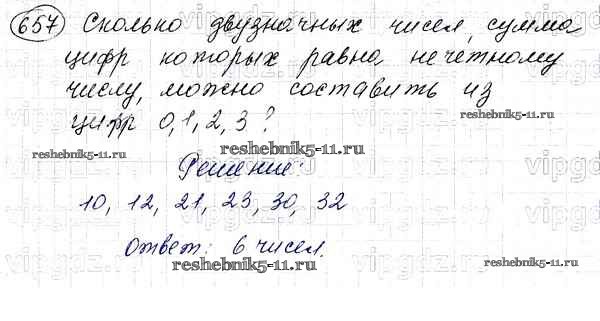 657 Сколько двузначных чисел, сумма
цифр которых равна нечетному
числу, можно составить из
цифр 0, 1, 2, 3?
reshebnik5-11.ru
reshebnik5-11.ru
Решение:
10, 12, 21, 23, 30, 32
Ответ: 6 чисел.
reshebnik5-11.ru